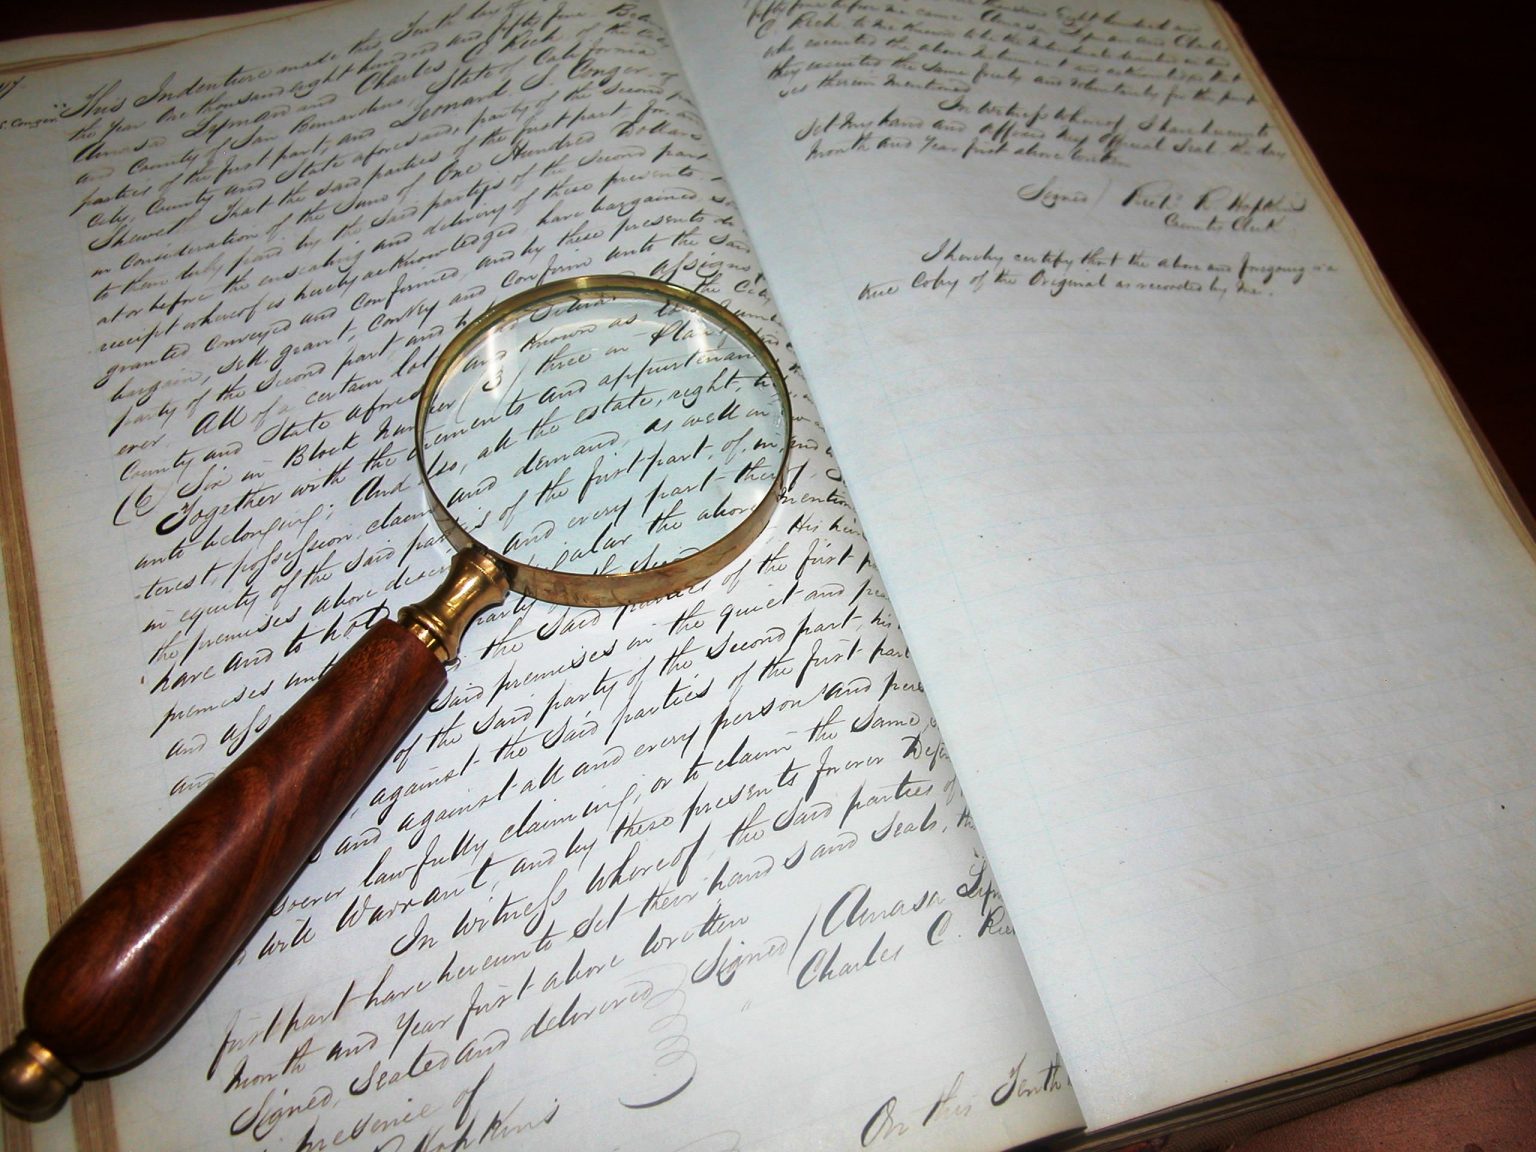 This Indenture made this Tenth day of
the Year One thousand eight hundred and fifty four Between
Amasa Lyman and Charles C. Rich of the City
and County of San Bernardino, State of California
parties of the first part, and Leonard S. Conger, of
City, County and State aforesaid, party of the Second part
S. Conger
Sheweth That the Said parties of the first part for and
in Consideration of the Sum of One Hundred Dollars
to them duly paid by the Said partys of the Second part
at or before the ensealing and delivery of these presents
receipt whereof is hereby acKnowledged, have bargained
granted conveyed and Confirmed, and by these presents do
bargain, Sell, grant, Convey and Confirm unto the Said
party of the Second part and assigns
ever. All of a certain lot the City
County and State afores and Known as Lot Number
(6) Six in Block Number 3) three in Plan
Together with the ements and appurtenan
unto belonging; And also, all the estate, right,
terest, possession, claim and demand, as well in
in equity of the Said parties of the first part, of, in, and
the premises above descr and every part
have and to hold mention
premises unto party of the Second his
and ass the Said parties of the first
and Said premises in the quiet and
of the Said party of the Second part, his
against the Said parties of the first part
and against all and every person and
soever lawfully claiming, or to claim the Same
will Warrant, and by these presents forever Def
In witness whereof, the Said parties of
first part have hereunto Set their hands and Seals, the
Month and Year first above written
Signed, Sealed and delivered Signed Amasa Lym
presence of Charles C. Ric
Hopkins
On this Tenth
fifty four before me came Amasa Lyman and Charles
C. Rich to me Known to be the individuals described in and
who executed the above Instrument and acknowledged that
they executed the Same freely and voluntarily for the purp
ses therein Mentioned
In witness whereof I have hereunto
Set my hand and affixed my Official Seal the day
Month and Year first above written
Signed R. Hopkins
County Clerk
I hereby certify that the above and foregoing is a
true Copy of the Original as recorded by me.